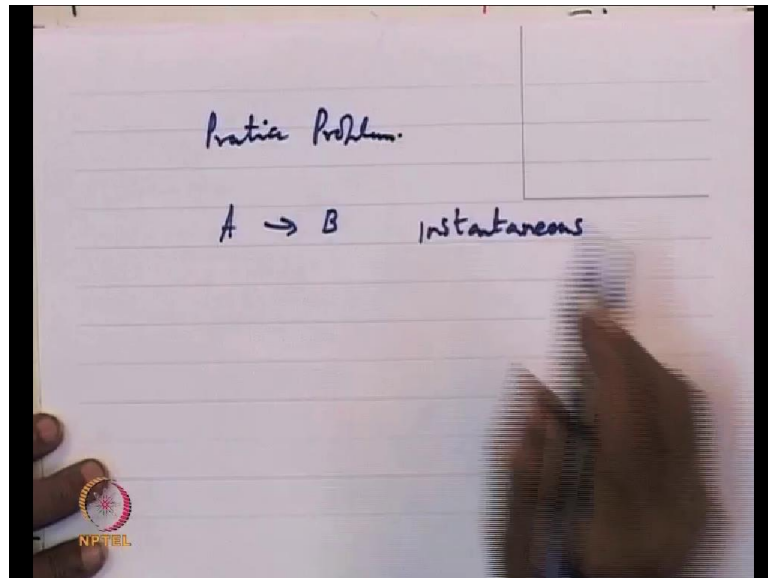 Pratice Problem.
A → B instantaneous
NPTEL